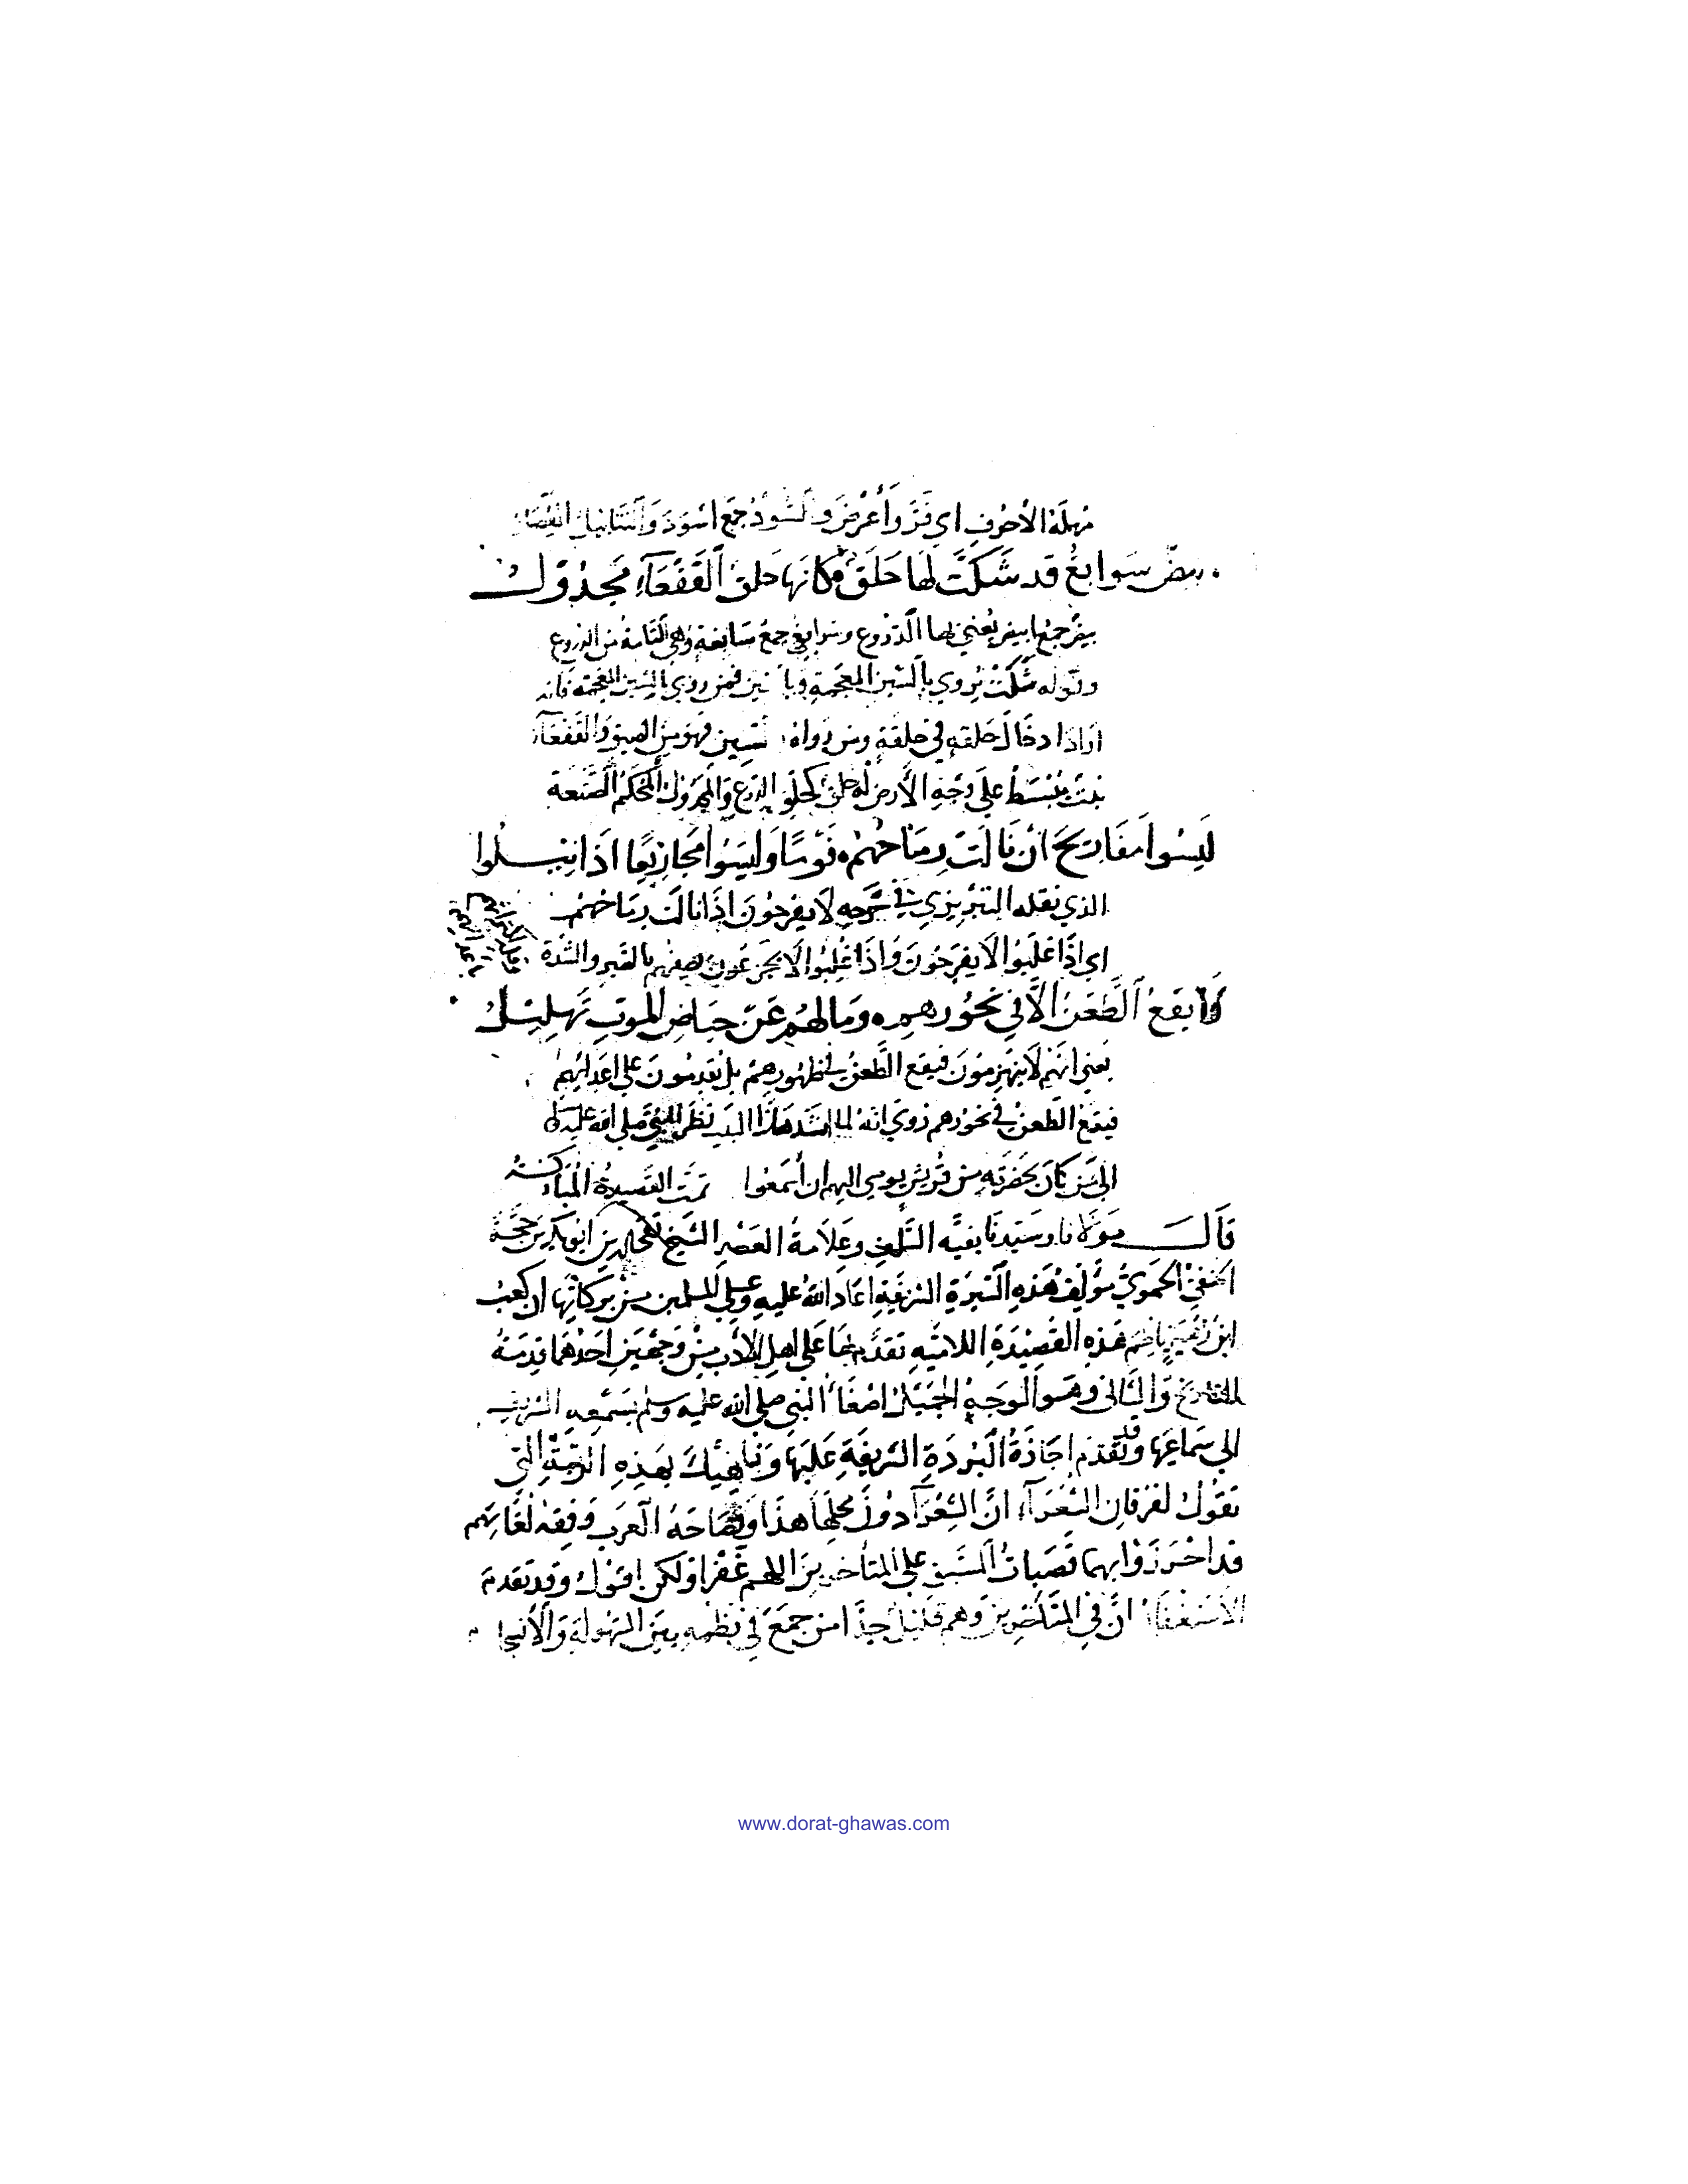 مهملة الأحرف اي فرّ وأعرض والسود جمع اسود والتنابيل القصار
بيض سوابغ قد شكت لها حلق كانها حلق القفعآء مجدول
بيض جمع ابيض يعني بها الدروع وسوابغ جمع سابغة وهي التامة من الدروع
وقوله شكت يروي بالشين المعجمة فمن روي بالشين المعجمة فانه
اراد ادخال حلقه في حلقة ومن رواه بالسين فهو من الضيق والقفعآء
نبت ينبسط على وجه الأرض له حلق كحلق الدرع والمجدول المحكم الصنعة
ليسوا مفاريح ان نالت رماحهم قوما وليسوا مجازيعا اذا نيلوا
الذي نقله التبريزي في شرحه لا يفرحون اذا نالت رماحهم
اي اذا غلبوا لا يفرحون واذا غلبوا لا يجزعون يصفهم بالصبر والشدة
لا يقع الطعن الا في نحورهم وما لهم عن حياض الموت تهليل
يعني انهم لا ينهزمون فيقع الطعن في ظهورهم بل يقدمون على اعدائهم
فيقع الطعن في نحورهم روي انه لما انشد هذا البيت نظر النبي صلى الله عليه
الى من كان بحضرته من قريش يومي اليهم ان اسمعوا تمت القصيدة المباركة
قال مولانا وسيدنا بقية السلف وعلامة العصر الشيخ تقي الدين ابو بكر بن حجة
الحنفي الحموي مؤلف هذه السيرة الشريفة اعاد الله عليه وعلى المسلمين من بركاتها ان كعب
ابن زهير ناظم هذه القصيدة اللامية تقدم بها على اهل الادب من وجهين احدهما قدمة
التاريخ والثاني وهو الوجه الجميل اصغآ النبي صلى الله عليه وسلم بسمعه الشريف
الى سماعها وقد تقدم اجازة البردة الشريفة عليها وناهيك بهذه الرتبة التي
تقول لفرقان الشعرآء ان الشعرآ دون محلها هذا وفصاحة العرب وفقه لغاتهم
قد احرزوا بهما قصبات السبق على المتأخرين اللهم غفرا ولكن اقول وقد تقدم
الاستغفار ان في المتأخرين وهم قليل جدا من جمع في نظمه بين السهولة والانسجا م
www.dorat-ghawas.com